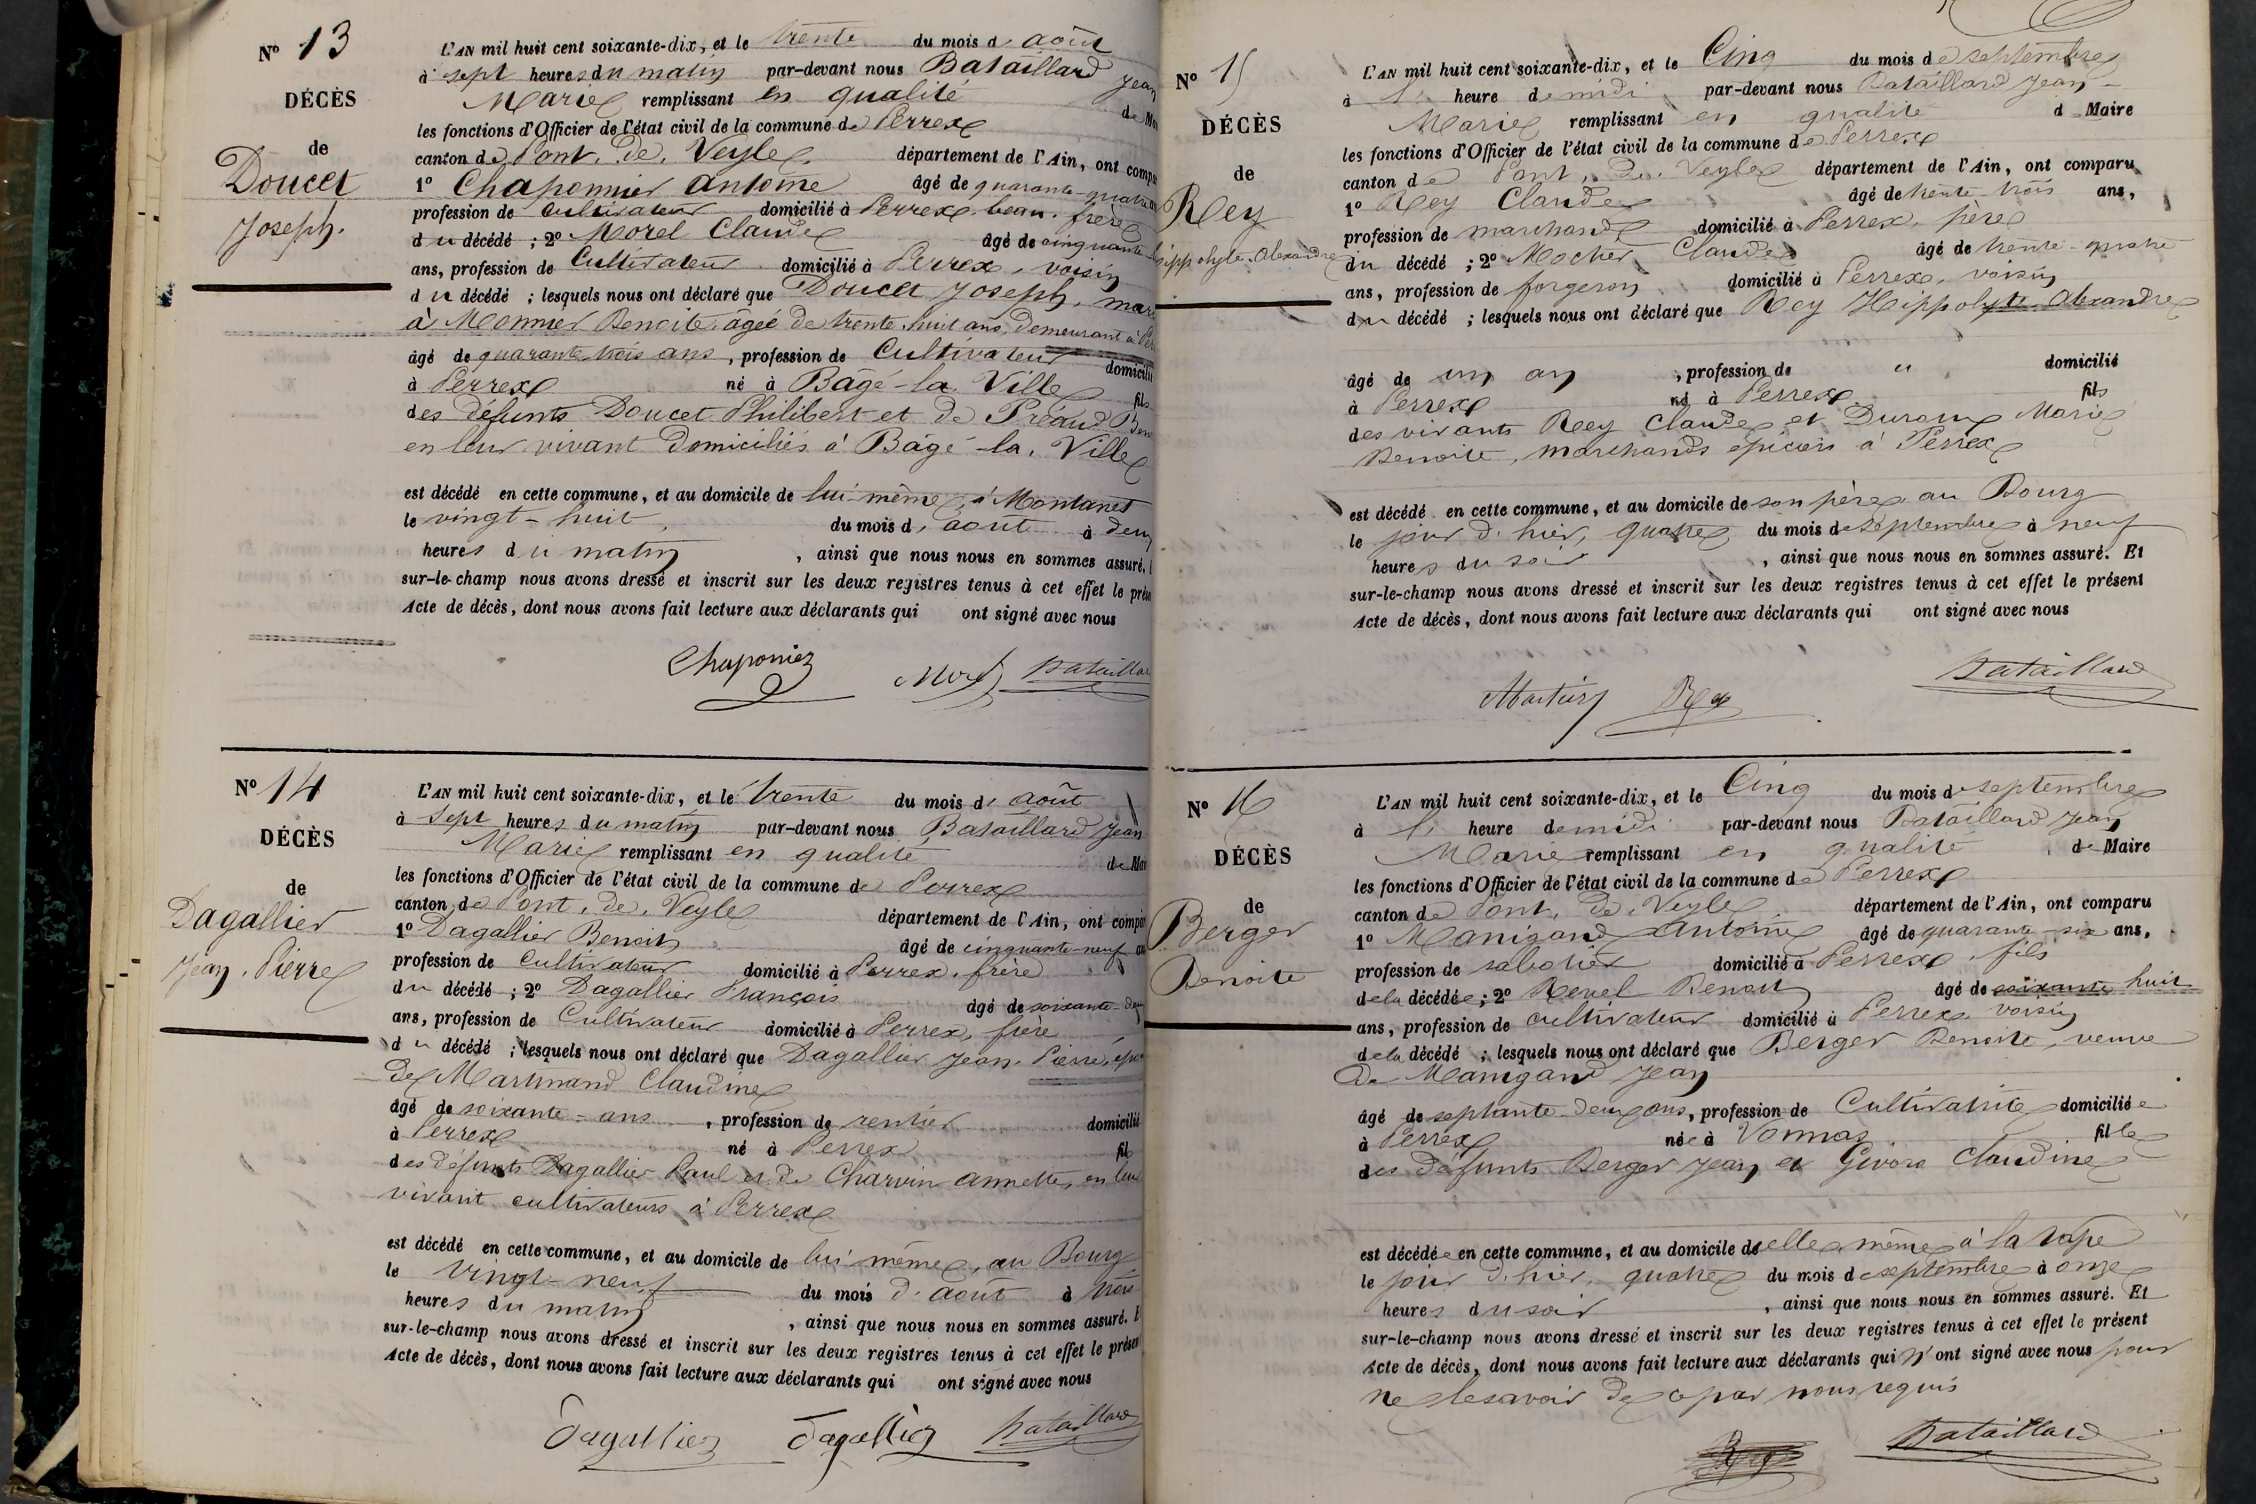 Nº 13
DÉCÈS
de
Doucet
Joseph.
L'AN mil huit cent soixante-dix, et le trente du mois d' août
à sept heures du matin par-devant nous Bataillard Jean
Marie remplissant en qualité de
les fonctions d'Officier de l'état civil de la commune de Perrex
canton de Pont. de. Veyle département de l'Ain, ont
1º Chaponnier Antoine âgé de quarante-quatre
profession de cultivateur domicilié à Perrex. beau. frère
du décédé ; 2º Morel Claude âgé de cinquante
ans, profession de Cultivateur domicilié à Perrex, voisin
du décédé ; lesquels nous ont déclaré que Doucet Joseph,
à Monnier Benoite âgée de trente huit ans, demeurant à
âgé de quarante trois ans, profession de Cultivateur domicilié
à Perrex né à Bâgé-la. Ville fils
des défunts Doucet Philibert et de Préaud
en leur vivant domiciliés à Bâgé-la. Ville
est décédé en cette commune, et au domicile de lui même, à Montanet
le vingt-huit du mois d' août à
heures du matin, ainsi que nous nous en sommes assuré.
sur-le-champ nous avons dressé et inscrit sur les deux registres tenus à cet effet le
Acte de décès, dont nous avons fait lecture aux déclarants qui ont signé avec nous
Chaponier Morel
Nº 14
DÉCÈS
de
Dagallier
Jean. Pierre
L'AN mil huit cent soixante-dix, et le trente du mois d' août
à sept heures du matin par-devant nous Bataillard Jean
Marie remplissant en qualité de
les fonctions d'Officier de l'état civil de la commune de Perrex
canton de Pont. de. Veyle département de l'Ain, ont
1º Dagallier Benoit âgé de cinquante-neuf
profession de Cultivateur domicilié à Perrex, frère
du décédé ; 2º Dagallier François âgé de soixante
ans, profession de Cultivateur domicilié à Perrex, frère
du décédé ; lesquels nous ont déclaré que Dagallier Jean. Pierre,
de Martinand Claudine
âgé de soixante-ans, profession de rentier domicilié
à Perrex né à Perrex fils
des défunts Dagallier Paul et de Charvin Annette, en leur
vivant cultivateurs à Perrex
est décédé en cette commune, et au domicile de lui même, au Bourg
le vingt-neuf du mois d' août à trois
heures du matin, ainsi que nous nous en sommes assuré.
sur-le-champ nous avons dressé et inscrit sur les deux registres tenus à cet effet le
Acte de décès, dont nous avons fait lecture aux déclarants qui ont signé avec nous
Dagallier Dagallier Bataillard
Nº 15
DÉCÈS
de
Rey
Hippolyte. Alexandre
L'AN mil huit cent soixante-dix, et le Cinq du mois de septembre
à heure de midi par-devant nous Bataillard Jean
Marie remplissant en qualité de Maire
les fonctions d'Officier de l'état civil de la commune de Perrex
canton de Pont. de. Veyle département de l'Ain, ont comparu
1º Rey Claude âgé de trente-trois ans,
profession de marchand domicilié à Perrex, père
du décédé ; 2º Claude âgé de trente-quatre
ans, profession de forgeron domicilié à Perrex, voisin
du décédé ; lesquels nous ont déclaré que Rey Hippolyte Alexandre
âgé de un an, profession de " domicilié
à Perrex né à Perrex fils
des vivants Rey Claude et Marie
Benoite, marchands épiciers à Perrex
est décédé en cette commune, et au domicile de son père au Bourg
le jour d'hier, quatre du mois de septembre à neuf
heures du soir, ainsi que nous nous en sommes assuré. Et
sur-le-champ nous avons dressé et inscrit sur les deux registres tenus à cet effet le présent
Acte de décès, dont nous avons fait lecture aux déclarants qui ont signé avec nous
Rey Bataillard
Nº 16
DÉCÈS
de
Berger
Benoite
L'AN mil huit cent soixante-dix, et le Cinq du mois de septembre
à heure de midi par-devant nous Bataillard Jean
Marie remplissant en qualité de Maire
les fonctions d'Officier de l'état civil de la commune de Perrex
canton de Pont. de. Veyle département de l'Ain, ont comparu
1º Manigand Antoine âgé de quarante-six ans,
profession de sabotier domicilié à Perrex, fils
de la décédée ; 2º Revel Benoit âgé de soixante huit
ans, profession de cultivateur domicilié à Perrex voisin
de la décédé ; lesquels nous ont déclaré que Berger Benoite, veuve
de Manigand Jean
âgé de septante-deux ans, profession de Cultivatrice domiciliée
à Perrex née à Vonnas fille
des défunts Berger Jean et Givord Claudine
est décédée en cette commune, et au domicile de elle même à la
le jour d'hier, quatre du mois de septembre à onze
heures du soir, ainsi que nous nous en sommes assuré. Et
sur-le-champ nous avons dressé et inscrit sur les deux registres tenus à cet effet le présent
Acte de décès, dont nous avons fait lecture aux déclarants qui n'ont signé avec nous pour
ne le savoir de ce par nous requis
Bataillard